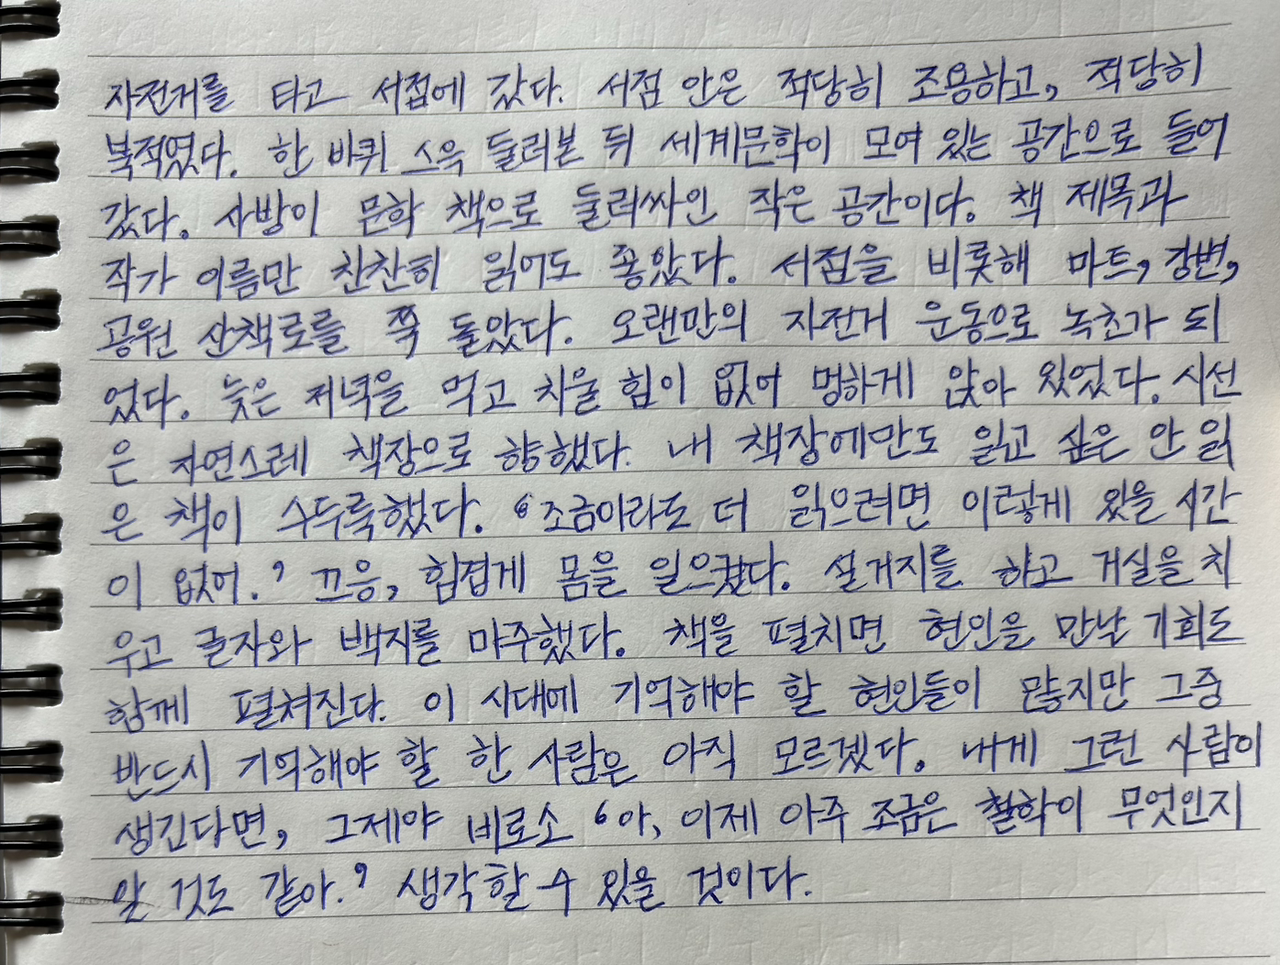 자전거를 타고 서점에 갔다. 서점 안은 적당히 조용하고, 적당히
북적였다. 한 바퀴 스윽 둘러본 뒤 세계문학이 모여 있는 공간으로 들어
갔다. 사방이 문학 책으로 둘러싸인 작은 공간이다. 책 제목과
작가 이름만 찬찬히 읽어도 좋았다. 서점을 비롯해 마트, 강변,
공원 산책로를 쭉 돌았다. 오랜만의 자전거 운동으로 녹초가 되
었다. 늦은 저녁을 먹고 치울 힘이 없어 멍하게 앉아 있었다. 시선
은 자연스레 책장으로 향했다. 내 책장에만도 읽고 싶은 안 읽
은 책이 수두룩했다. ‘조금이라도 더 읽으려면 이렇게 있을 시간
이 없어.’ 끄응, 힘겹게 몸을 일으켰다. 설거지를 하고 거실을 치
우고 글자와 백지를 마주했다. 책을 펼치면 현인을 만난 기회도
함께 펼쳐진다. 이 시대에 기억해야 할 현인들이 많지만 그중
반드시 기억해야 할 한 사람은 아직 모르겠다. 내게 그런 사람이
생긴다면, 그제야 비로소 ‘아, 이제 아주 조금은 철학이 무엇인지
알 것도 같아.’ 생각할 수 있을 것이다.